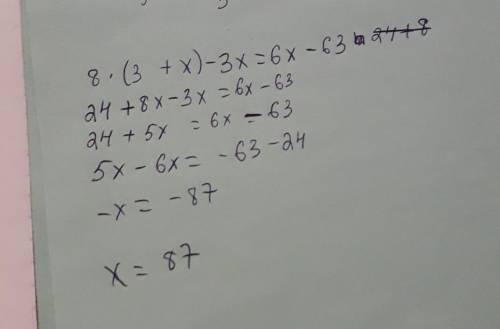 8 · (3 + x) - 3x = 6x - 63
24 + 8x - 3x = 6x - 63
24 + 5x = 6x - 63
5x - 6x = - 63 - 24
-x = - 87
x = 87